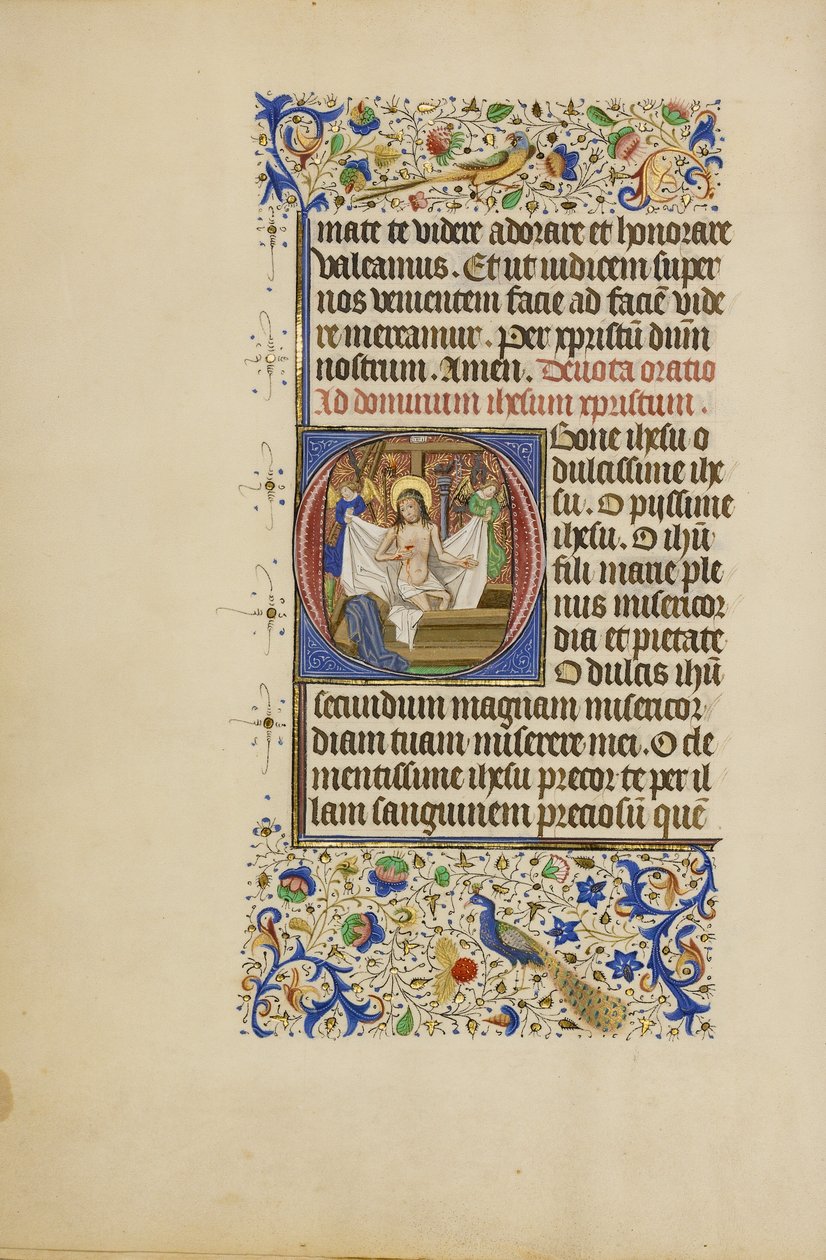 mate te videre adorare et honorare
valeamus. Et ut iudicem super
nos venientem facie ad faciē vide
re mereamur. Per xpristū dūm
nostrum. Amen. Devota oratio
Ad dominum ihesum xpristum.
O
Bone ihesu o
dulcissime ihe
su. O pijssime
ihesu. O ihū
fili marie ple
nus misericor
dia et pietate
O dulcis ihū
secundum magnam misericor
diam tuam miserere mei. O cle
mentissime ihesu precor te per il
lam sanguinem preciosū quē